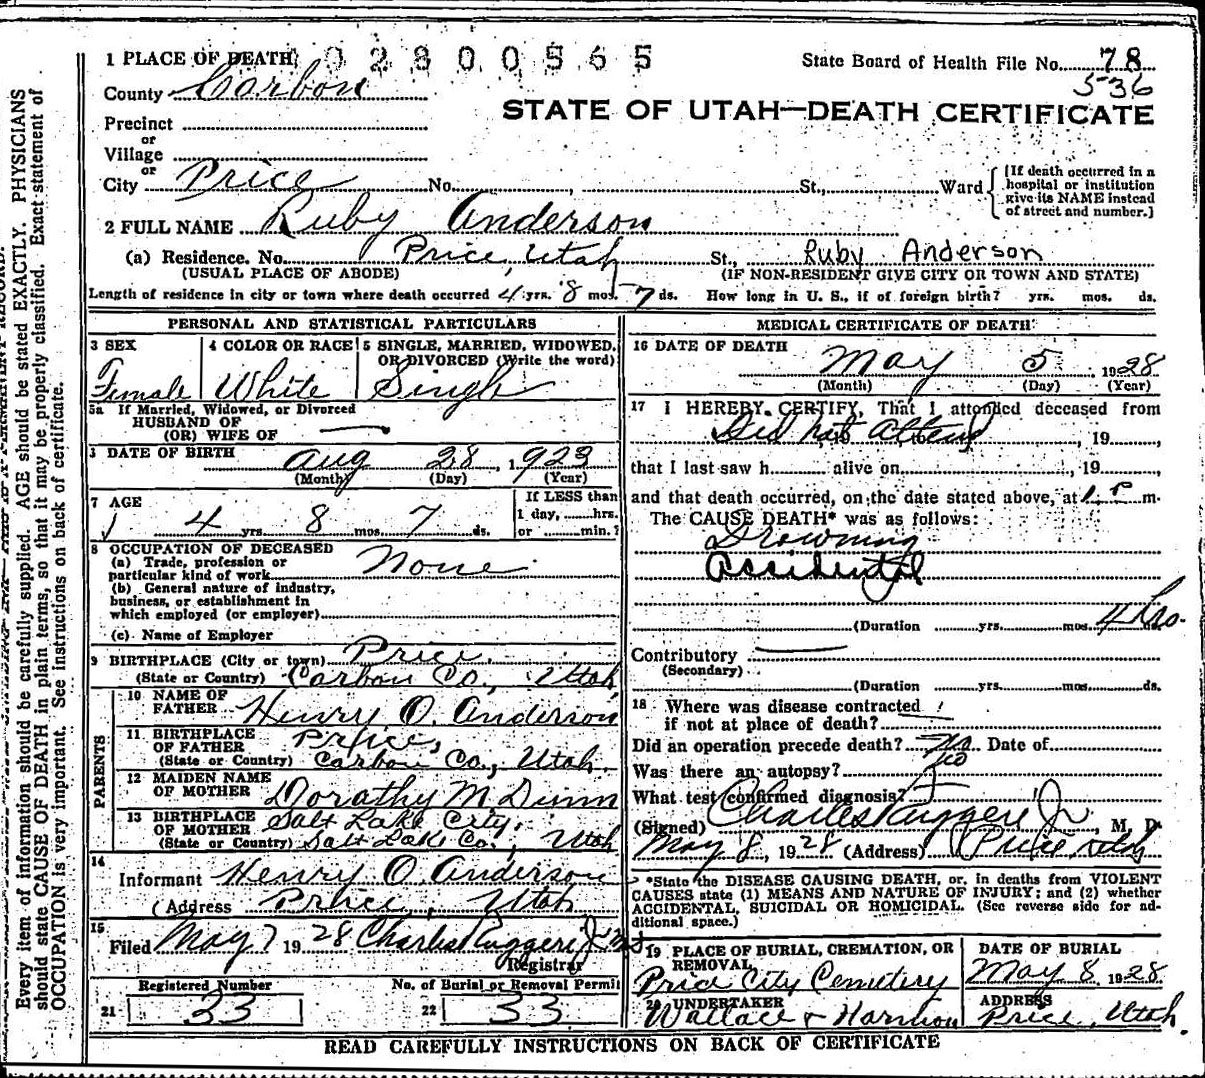 1 PLACE OF DEATH 02800565 State Board of Health File No. 78
536
County Carbon
STATE OF UTAH—DEATH CERTIFICATE
Precinct
or
Village
or
City Price No. , St., Ward
(If death occurred in a
hospital or institution
give its NAME instead
of street and number.)
2 FULL NAME Ruby Anderson
(a) Residence. No. Price, Utah St., Ruby Anderson
(USUAL PLACE OF ABODE) (IF NON-RESIDENT GIVE CITY OR TOWN AND STATE)
Length of residence in city or town where death occurred 4 yrs. 8 mos. 7 ds. How long in U. S., if of foreign birth? yrs. mos. ds.
PERSONAL AND STATISTICAL PARTICULARS
3 SEX 4 COLOR OR RACE 5 SINGLE, MARRIED, WIDOWED,
OR DIVORCED (Write the word)
Female White Single
5a If Married, Widowed, or Divorced
HUSBAND OF
(OR) WIFE OF
DATE OF BIRTH Aug 28, 1923
(Month) (Day) (Year)
7 AGE If LESS than
4 yrs. 8 mos. 7 ds. 1 day, hrs.
or min.?
8 OCCUPATION OF DECEASED None
(a) Trade, profession or
particular kind of work
(b) General nature of industry,
business, or establishment in
which employed (or employer)
(c) Name of Employer
9 BIRTHPLACE (City or town) Price.
(State or Country) Carbon Co., Utah
PARENTS
10 NAME OF
FATHER Henry O. Anderson
11 BIRTHPLACE
OF FATHER Price,
(State or Country) Carbon Co., Utah.
12 MAIDEN NAME
OF MOTHER Dorathy M. Dunn
13 BIRTHPLACE
OF MOTHER Salt Lake City,
(State or Country) Salt Lake Co., Utah
14
Informant Henry O. Anderson
(Address Price, Utah
15
Filed May 7 1928 Charles Ruggeri Jr MD
Registrar
Registered Number No. of Burial or Removal Permit
21 33 22 33
MEDICAL CERTIFICATE OF DEATH
16 DATE OF DEATH
May 5 1928
(Month) (Day) (Year)
17 I HEREBY CERTIFY, That I attended deceased from
Did not attend , 19 ,
that I last saw h alive on , 19 ,
and that death occurred, on the date stated above, at 1 P m.
The CAUSE DEATH* was as follows:
Drowning
Accidental
(Duration yrs. mos. 4 hrs.
Contributory
(Secondary)
(Duration yrs. mos. ds.
18 Where was disease contracted
if not at place of death?
Did an operation precede death? No Date of
Was there an autopsy? No
What test confirmed diagnosis?
(Signed) Charles Ruggeri Jr, M. D.
May 8, 1928 (Address) Price, Utah
*State the DISEASE CAUSING DEATH, or, in deaths from VIOLENT
CAUSES state (1) MEANS AND NATURE OF INJURY; and (2) whether
ACCIDENTAL, SUICIDAL OR HOMICIDAL. (See reverse side for ad-
ditional space.)
19 PLACE OF BURIAL, CREMATION, OR
REMOVAL
Price City Cemetery
DATE OF BURIAL
May 8 1928
20 UNDERTAKER
Wallace & Harmon
ADDRESS
Price, Utah.
READ CAREFULLY INSTRUCTIONS ON BACK OF CERTIFICATE
Every item of information should be carefully supplied. AGE should be stated EXACTLY. PHYSICIANS
should state CAUSE OF DEATH in plain terms, so that it may be properly classified. Exact statement of
OCCUPATION is very important. See instructions on back of certificate.